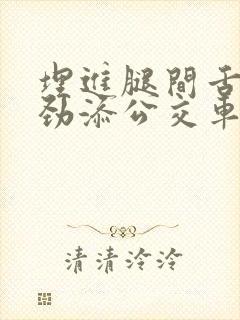 埋進腿間舌
劲添公交車
清清泠泠